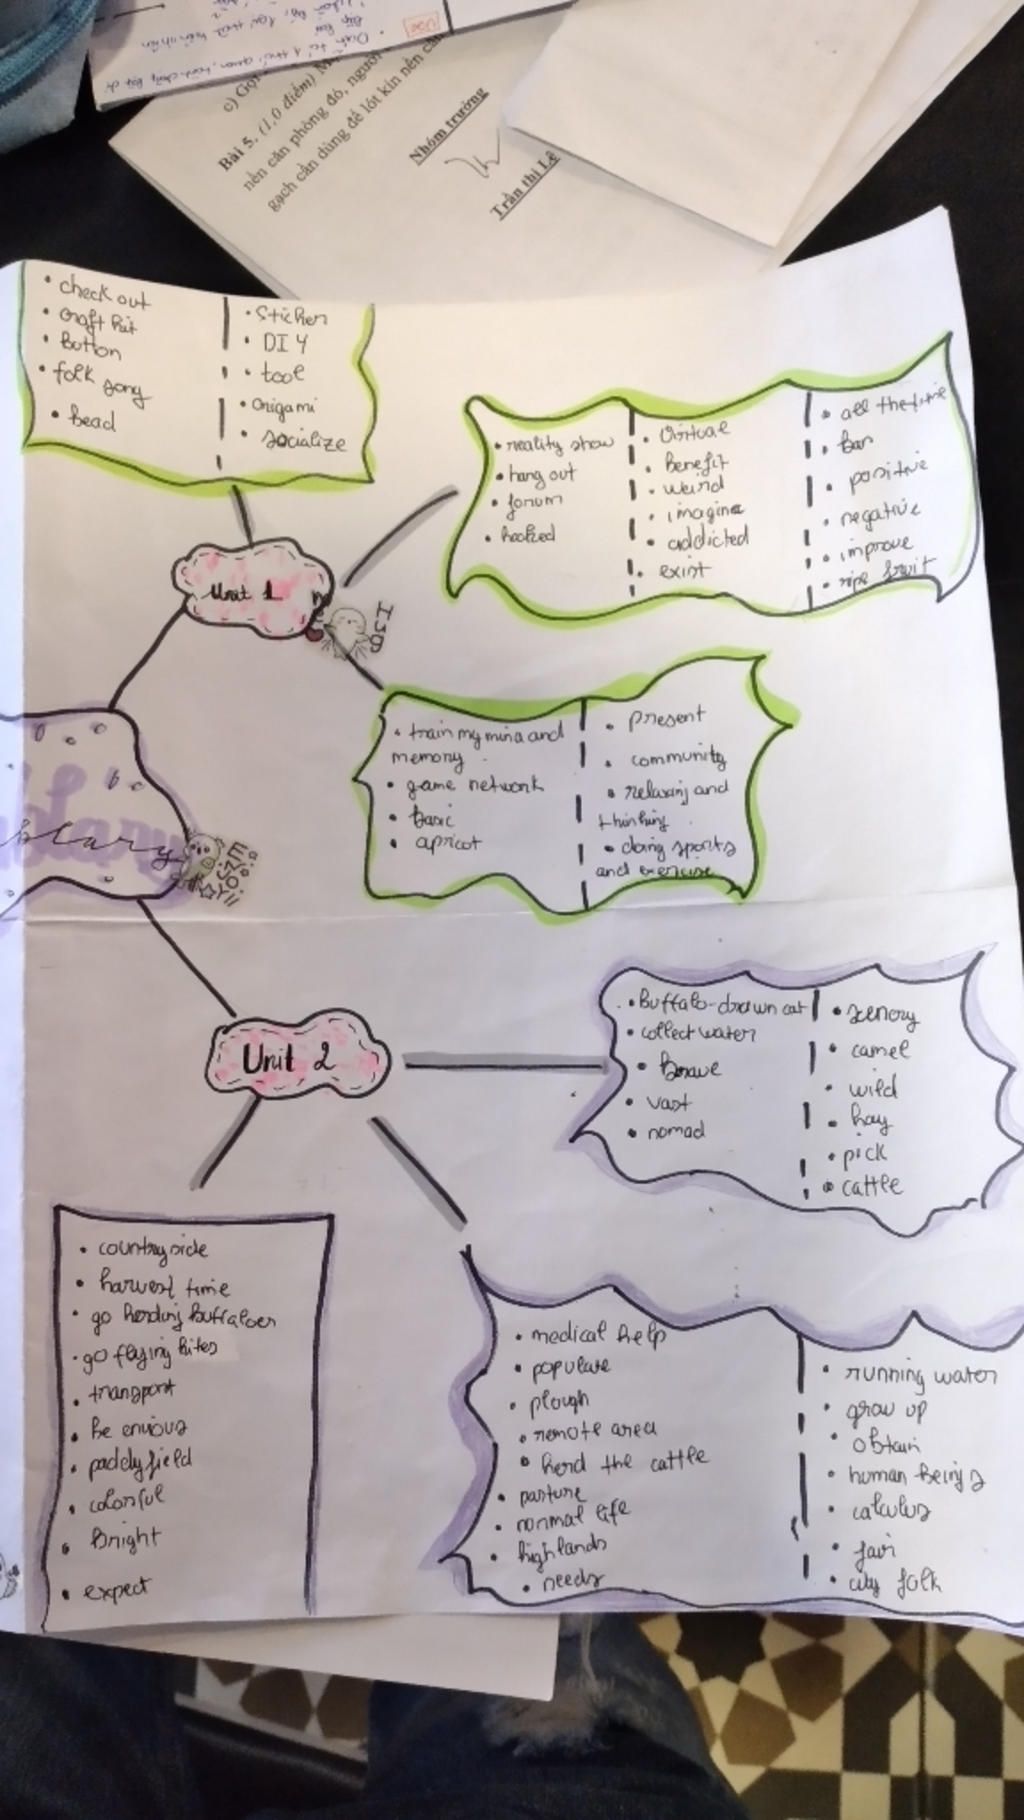 c) Gọi
Bài 5. (1,0 điểm)
nền căn phòng đó, người
gạch cần dùng để lót kín nền căn
Nhóm trưởng
Trần thi Lê
• check out
• craft kit
• Button
• folk song
• bead
• Sticker
• DIY
• tool
• Origami
• socialize
Unit 1
• reality show
• hang out
• forum
• hooked
• Virtual
• Benefit
• weird
• imagine
• addicted
• exist
• all the time
• Ban
• positive
• negative
• improve
• ripe fruit
• train my mind and
memory
• game network
• Basic
• apricot
• present
• community
• relaxing and
thinking
• doing sports
and exercise
ENJOY!!
Unit 2
• Buffalo-drawn cat
• collect water
• Brave
• vast
• nomad
• scenery
• camel
• wild
• hay
• pick
• cattle
• countryside
• harvest time
• go herding buffaloes
• go flying kites
• transport
• Be envious
• paddy field
• colorful
• Bright
• expect
• medical help
• populate
• plough
• remote area
• herd the cattle
• pasture
• normal life
• highlands
• needs
• running water
• grow up
• obtain
• human beings
• calculus
• fair
• city folk